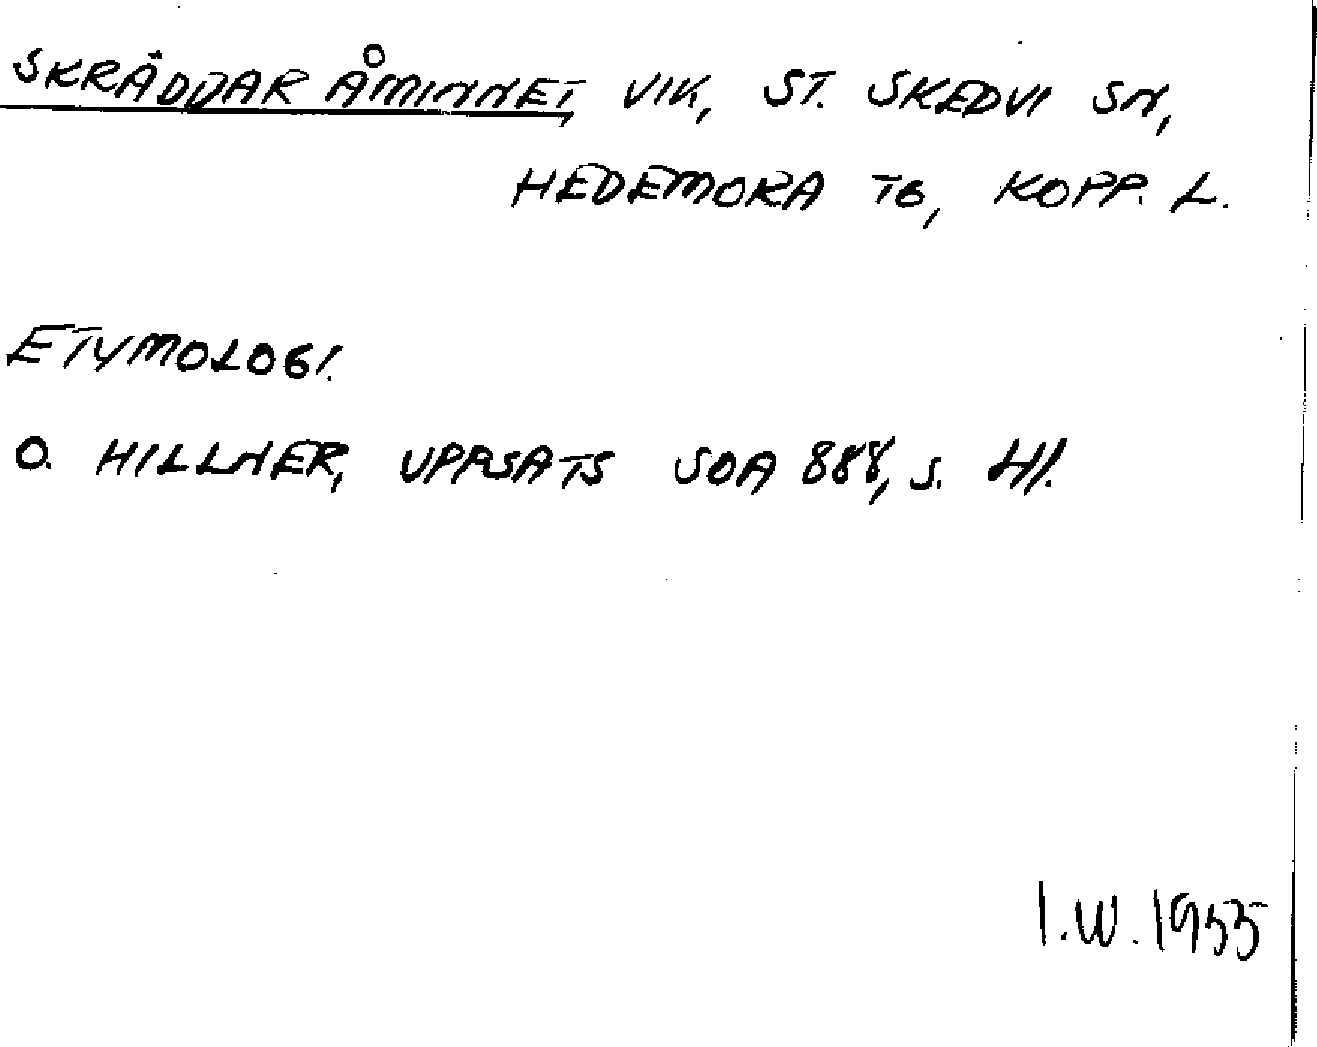 SKRÄDDAR ÅMINNET, VIK, ST. SKEDVI SN,
HEDEMORA TG, KOPP. L.
ETYMOLOGI.
O. HILLNER, UPPSATS SOA 888, S. 41.
I.W. 1955